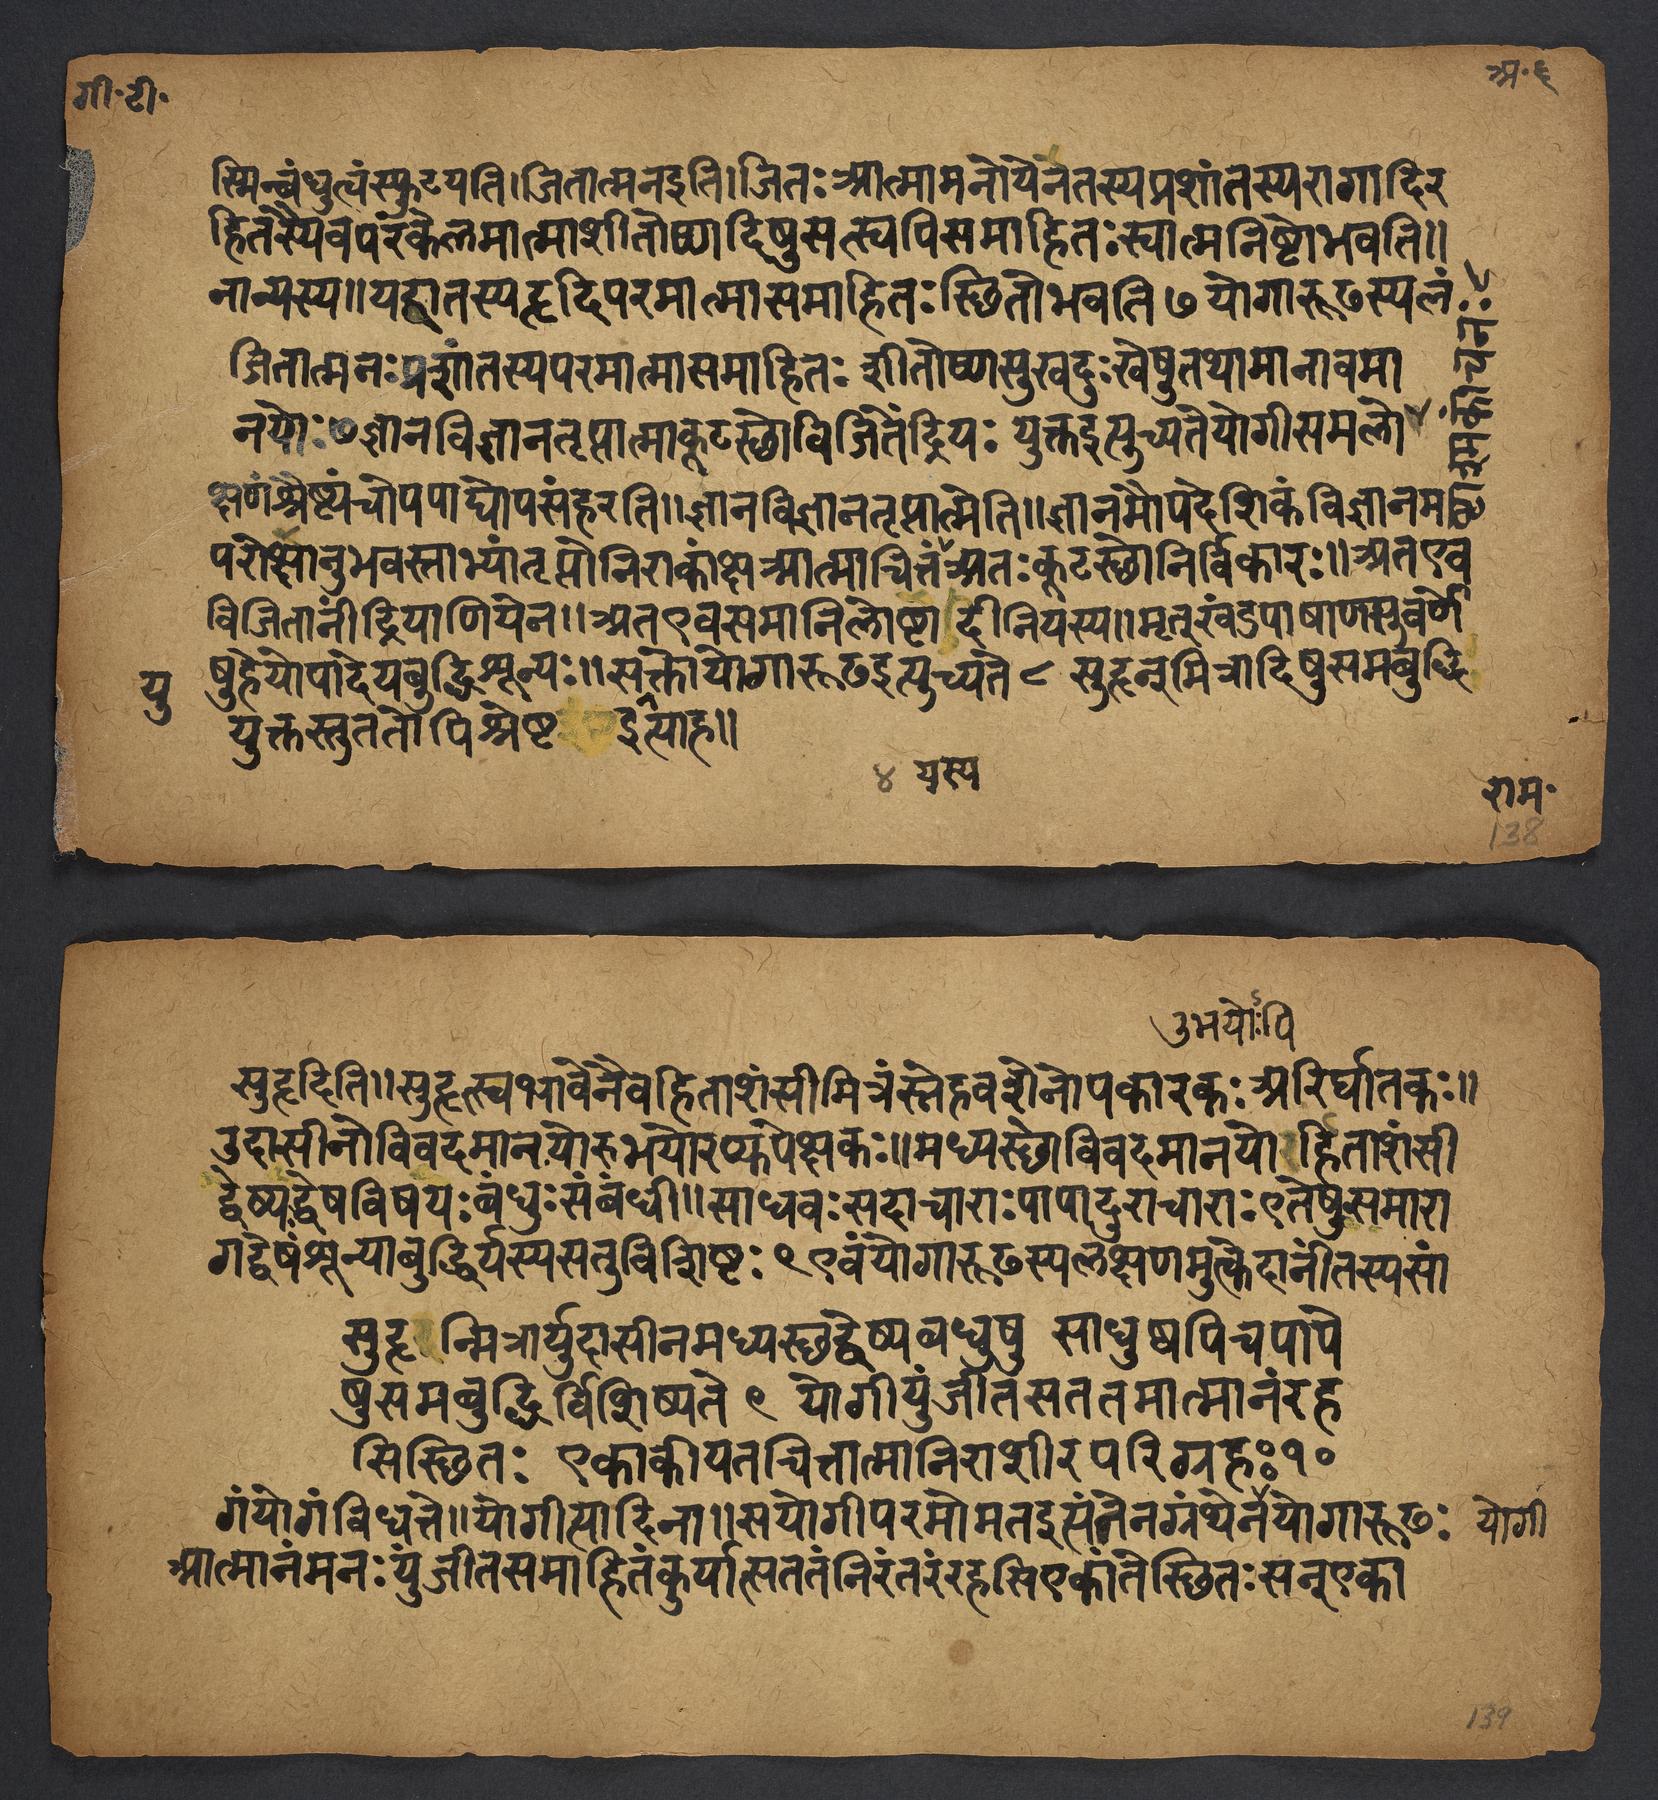 गी॰टी॰
अ॰६
स्मिन्बंधुत्वंस्फुटयति।जितात्मनइति।जितःआत्मामनोयेनतस्यप्रशांतस्यरागादिर
हितस्यैवपरंकेवलमात्माशीतोष्णादिषुसत्स्वपिसमाहितःस्वात्मनिष्टोभवति॥
नान्यस्य॥यद्वातस्यहृदिपरमात्मासमाहितःस्छितोभवति७योगारूढस्यल
जितात्मनःप्रशांतस्यपरमात्मासमाहितः शीतोष्णसुखदुःखेषुतथामानावमा
नयोः७ज्ञानविज्ञानतृप्तात्माकूटस्छोविजितेंद्रियः युक्तइत्युच्यतेयोगीसमलो
ष्टाश्मकांचनः
क्षणंश्रैष्ट्यंचोपपाद्योपसंहरति॥ज्ञानविज्ञानतृप्तात्मेति॥ज्ञानमौपदेशिकंविज्ञानम
परोक्षानुभवस्ताभ्यांतृप्तोनिराकांक्षआत्माचित्तंअतःकूटस्छोनिर्विकारः॥अतएव
विजितानींद्रियाणियेन॥अतएवसमानिलोष्टादीनियस्य॥मृत्खंडपाषाणसुवर्णे
षुहेयोपादेयबुद्धिशून्यः॥सक्तोयोगारूढइत्युच्यते८ सुहृन्मित्रादिषुसमबुद्धि
यु
युक्तस्तुततोपिश्रेष्ट इत्याह॥
४ यस्य
राम॰
138
उभयोःपि
सुहृदिति॥सुहृत्स्वभावेनैवहिताशंसीमित्रंस्नेहवशेनोपकारकःअरिर्घातकः॥
उदासीनोविवदमानयोरुभयोरप्यपेक्षकः॥मध्यस्छोविवदमानयो र्हिताशंसी
द्वेष्यद्वेषविषयःबंधुःसंबंधी॥साधवःसदाचाराःपापादुराचाराःएतेषुसमारा
गद्वेषशून्याबुद्धिर्यस्यसतुविशिष्टः९एवंयोगारूढस्यलक्षणमुत्केदानींतस्यसां
सुहृ न्मित्रार्युदासीनमध्यस्छद्वेष्यबंधुषु साधुष्वपिचपापे
षुसमबुद्धिर्विशिष्यते९ योगीयुंजीतसततमात्मानंरह
सिस्छितः एकाकीयतचित्तात्मानिराशीरपरिग्रहः१०
गंयोगंविधत्ते॥योगीत्यादिना॥सयोगीपरमोमतइत्यंतेनग्रंथेनयोगारूढः
योगी
आत्मानंमनःयुंजीतसमाहितंकुर्यात्सततंनिरंतरंरहसिएकांतेस्छितःसन्एका
139